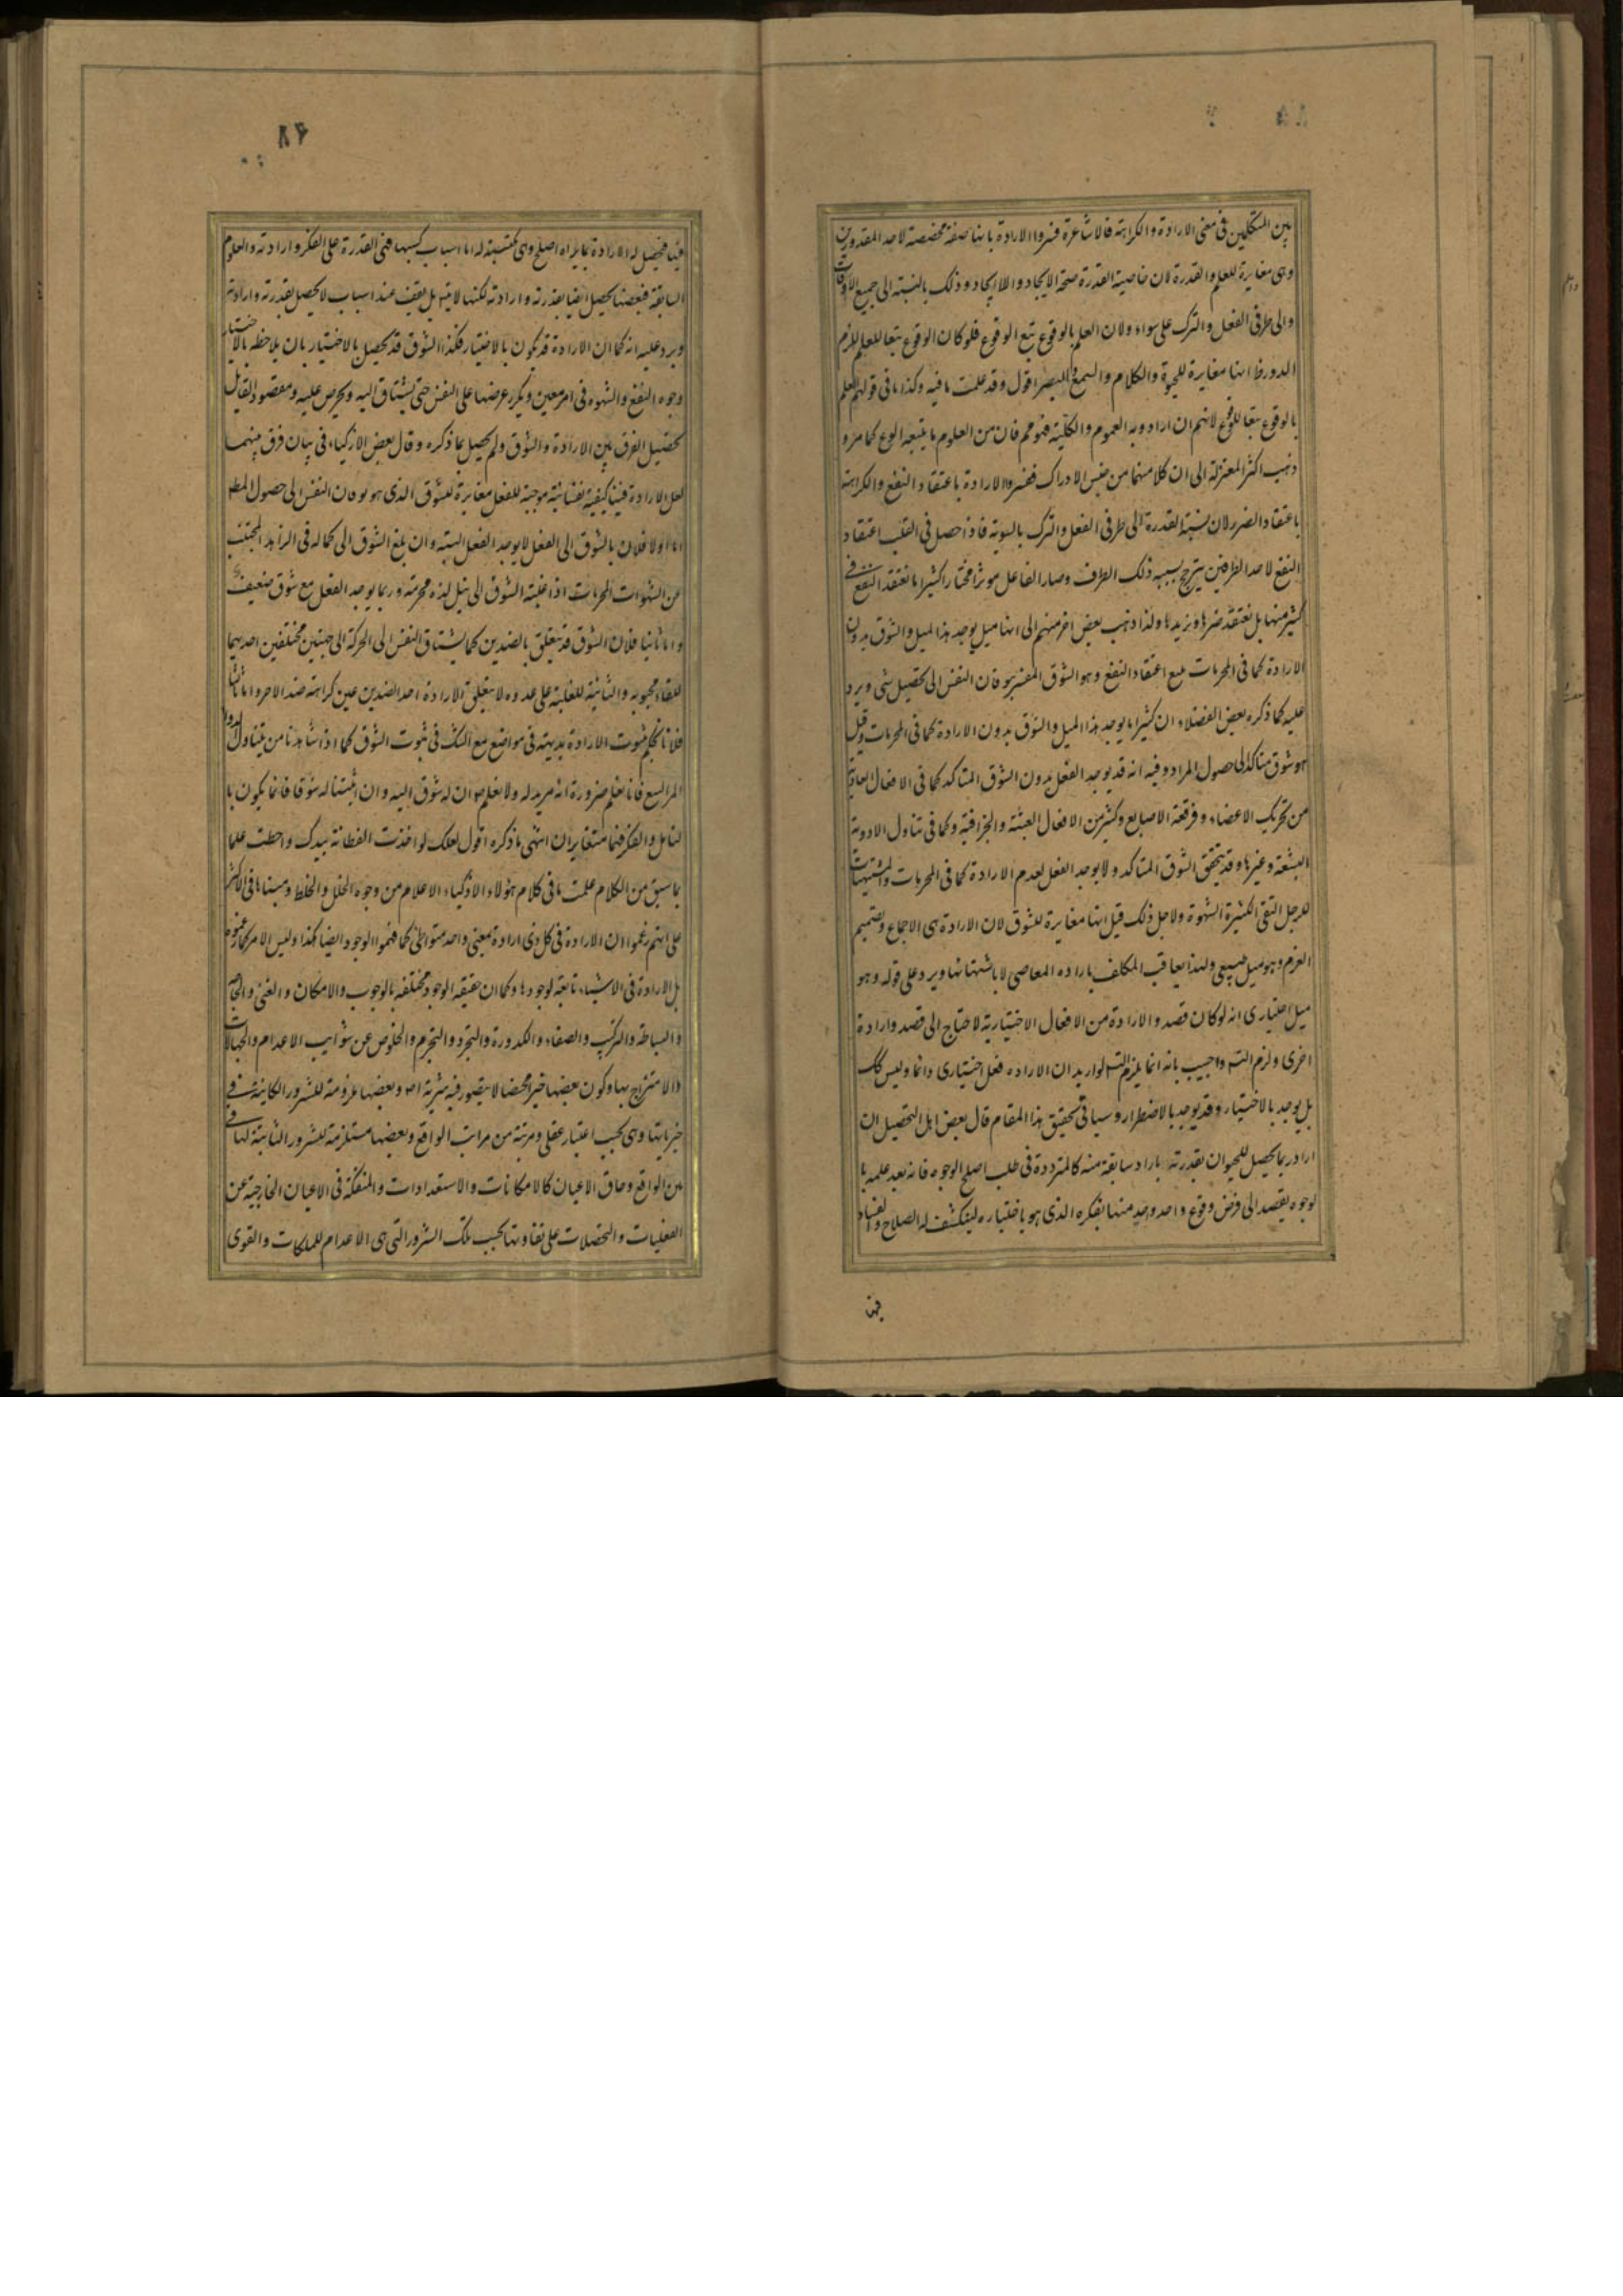 بين المتكلمين فى معنى الارادة والكراهة فالاشاعرة فسروا الارادة بانها صفة مخصصة لاحد المقدورين
وهى مغايرة للعلم والقدرة لان خاصية القدرة صحة الايجاد واللا ايجاد وذلك بالنسبة الى جميع الاوقات
والى طرفى الفعل والترك على سواء ولان العلم بالوقوع تبع الوقوع فلو كان الوقوع تبعا للعلم لزم
الدور وظ انها مغايرة للحيوة والكلام والسمع والبصر اقول وقد علمت ما فيه وكذا ما فى قولهم العلم
بالوقوع تبعا للوقوع لانهم ان ارادوا به العموم والكلية فهو مم فان من العلوم ما يتبعه الوقوع كما مر و
ذهب اكثر المعتزلة الى ان كلا منهما من جنس الادراك ففسروا الارادة باعتقاد النفع والكراهة
باعتقاد الضرر لان نسبة القدرة الى طرفى الفعل والترك بالسوية فاذا حصل فى القلب اعتقاد
النفع لاحد الطرفين يترجح بسببه ذلك الطرف وصار الفاعل موثرا مختارا كثيرا ما نعتقد النفع فى
كثير منها بل نعتقد ضرها ونريدها ولذا ذهب بعض اخر منهم الى انها ميل يوجد هذا الميل والشوق بدون
الارادة كما فى المحرمات يتبع اعتقاد النفع وهو الشوق المفسر بتوقان النفس الى تحصيل شى ويرد
عليه كما ذكره بعض الفضلاء ان كثيرا ما يوجد هذا الميل والشوق بدون الارادة كما فى المحرمات وقيل
هو شوق متاكد الى حصول المراد وفيه انه قد يوجد الفعل بدون الشوق المتاكد كما فى الافعال العادية
من تحريك الاعضاء وفرقعة الاصابع وكثير من الافعال العبثة والجزافية وكما فى تناول الادوية
البشعة وغيرها وقد يتحقق الشوق المتاكد ولا يوجد الفعل لعدم الارادة كما فى المحرمات والمشتهيات
للرجل التقى الكثيرة الشهوة ولاجل ذلك قيل انها مغايرة للشوق لان الارادة هى الاجماع وتصميم
العزم وهو ميل طبيعى ولهذا يعاقب المكلف بارادة المعاصى لا باشتهائها ويرد على قوله وهو
ميل اختيارى انه لو كان قصد والارادة من الافعال الاختيارية لاحتاج الى قصد وارادة
اخرى ولزم التس واجيب بانه انما يلزم التس لو اريد ان الارادة فعل اختيارى دائما وليس كك
بل يوجد بالاختيار وقد يوجد بالاضطرار وسياتى تحقيق هذا المقام قال بعض اهل التحصيل ان
اراد ربما يحصل للحيوان بقدرته باراد سابقة منه كالمتردد ة فى طلب اصلح الوجوه فانه بعد علمه با
لوجوه يقصد الى فرض وقوع واحد واحد منها بفكره الذى هو باختياره لينكشف له الصلاح والفساد
فيها
٨٤
فيها فيحصل له الارادة بما يراه اصلح وهى مكتسبة له اما اسباب كسبها فهى القدرة على الفكر وارادته والعلوم
السابقة فبعضها يحصل ايضا بقدرته وارادته لكنها لا تتس بل يقف عند اسباب لا يحصل بقدرته وارادته
ويرد عليه انه كما ان الارادة قد يكون بالاختيار فكذا الشوق قد يحصل بالاختيار بان يلاحظه بالاختيار
وجوه النفع والشهوة فى امر معين ويكرر عرضها على النفس حتى يشتاق اليه ويحرص عليه ومقصود القايل
تحصيل الفرق بين الارادة والشوق ولم يحصل بما ذكره وقال بعض الازكياء فى بيان فرق بينهما
لعل الارادة فينا كيفية نفسانية موجبة للفعل مغايرة للشوق الذى هو توقان النفس الى حصول المط
اما اولا فلان بالشوق الى الفعل لا يوجد الفعل البته وان بلغ الشوق الى كماله فى الزاهد المجتنب
عن الشهوات المحرمات اذا غلبته الشوق الى نيل لذة محرمة وربما يوجد الفعل مع شوق ضعيف
واما ثانيا فلان الشوق قد يتعلق بالضدين كما يشتاق النفس الى الحركة الى جهتين مختلفين احديهما
للقاء محبوبه والثانية للغلبة على عدوه ولا يتعلق الارادة احد الضدين عين كراهة ضد الاخر واما ثالثا
فلانا نحكم ثبوت الارادة بديهة فى مواضع مع الشك فى ثبوت الشوق كما اذا شاهدنا من يتناول الدواء
المر البشع فانا نعلم ضرورة انه مريد له ولا نعلم ان له شوق اليه وان اثبتنا له شوقا فانما يكون با
لتامل والفكر فهما متغايران انتهى ما ذكره اقول لعلك لو اخذت الفطانة بيدك واحطت علما
بما سبق من الكلام علمت ما فى كلام هؤلاء الاذكياء الاعلام من وجوه الخلل والخلط ومبناها فى الاكثر
على انهم زعموا ان الارادة فى كل ذى ارادة بمعنى واحد متواطئ كما فهموا الوجود ايضا هكذا وليس الامر كما زعموه
بل الارادة فى الاشياء تابعة لوجودها وكما ان حقيقة الوجود مختلفة بالوجوب والامكان والغنى والحاجة
والبساطة والتركيب والصفاء والكدورة والتجرد والتجرم والخلوص عن شوايب الاعدام والجهالات
والامتزاج بها وكون بعضها خيرا محضا لا يتصور فيه شرية اص وبعضها ملزومة للشرور الكاينة فى
خيريتها وهى بحسب اعتبار عقلى ومرتبة من مراتب الواقع وبعضها مستلزمة للشرور الثابتة لها فى
متن الواقع وحاق الاعيان كالامكانات والاستعدادات والمنفكة فى الاعيان الخارجية عن
الفعليات والتحصلات على تفاوتها بحسب تلك الشرور التى هى الاعدام للملكات والقوى